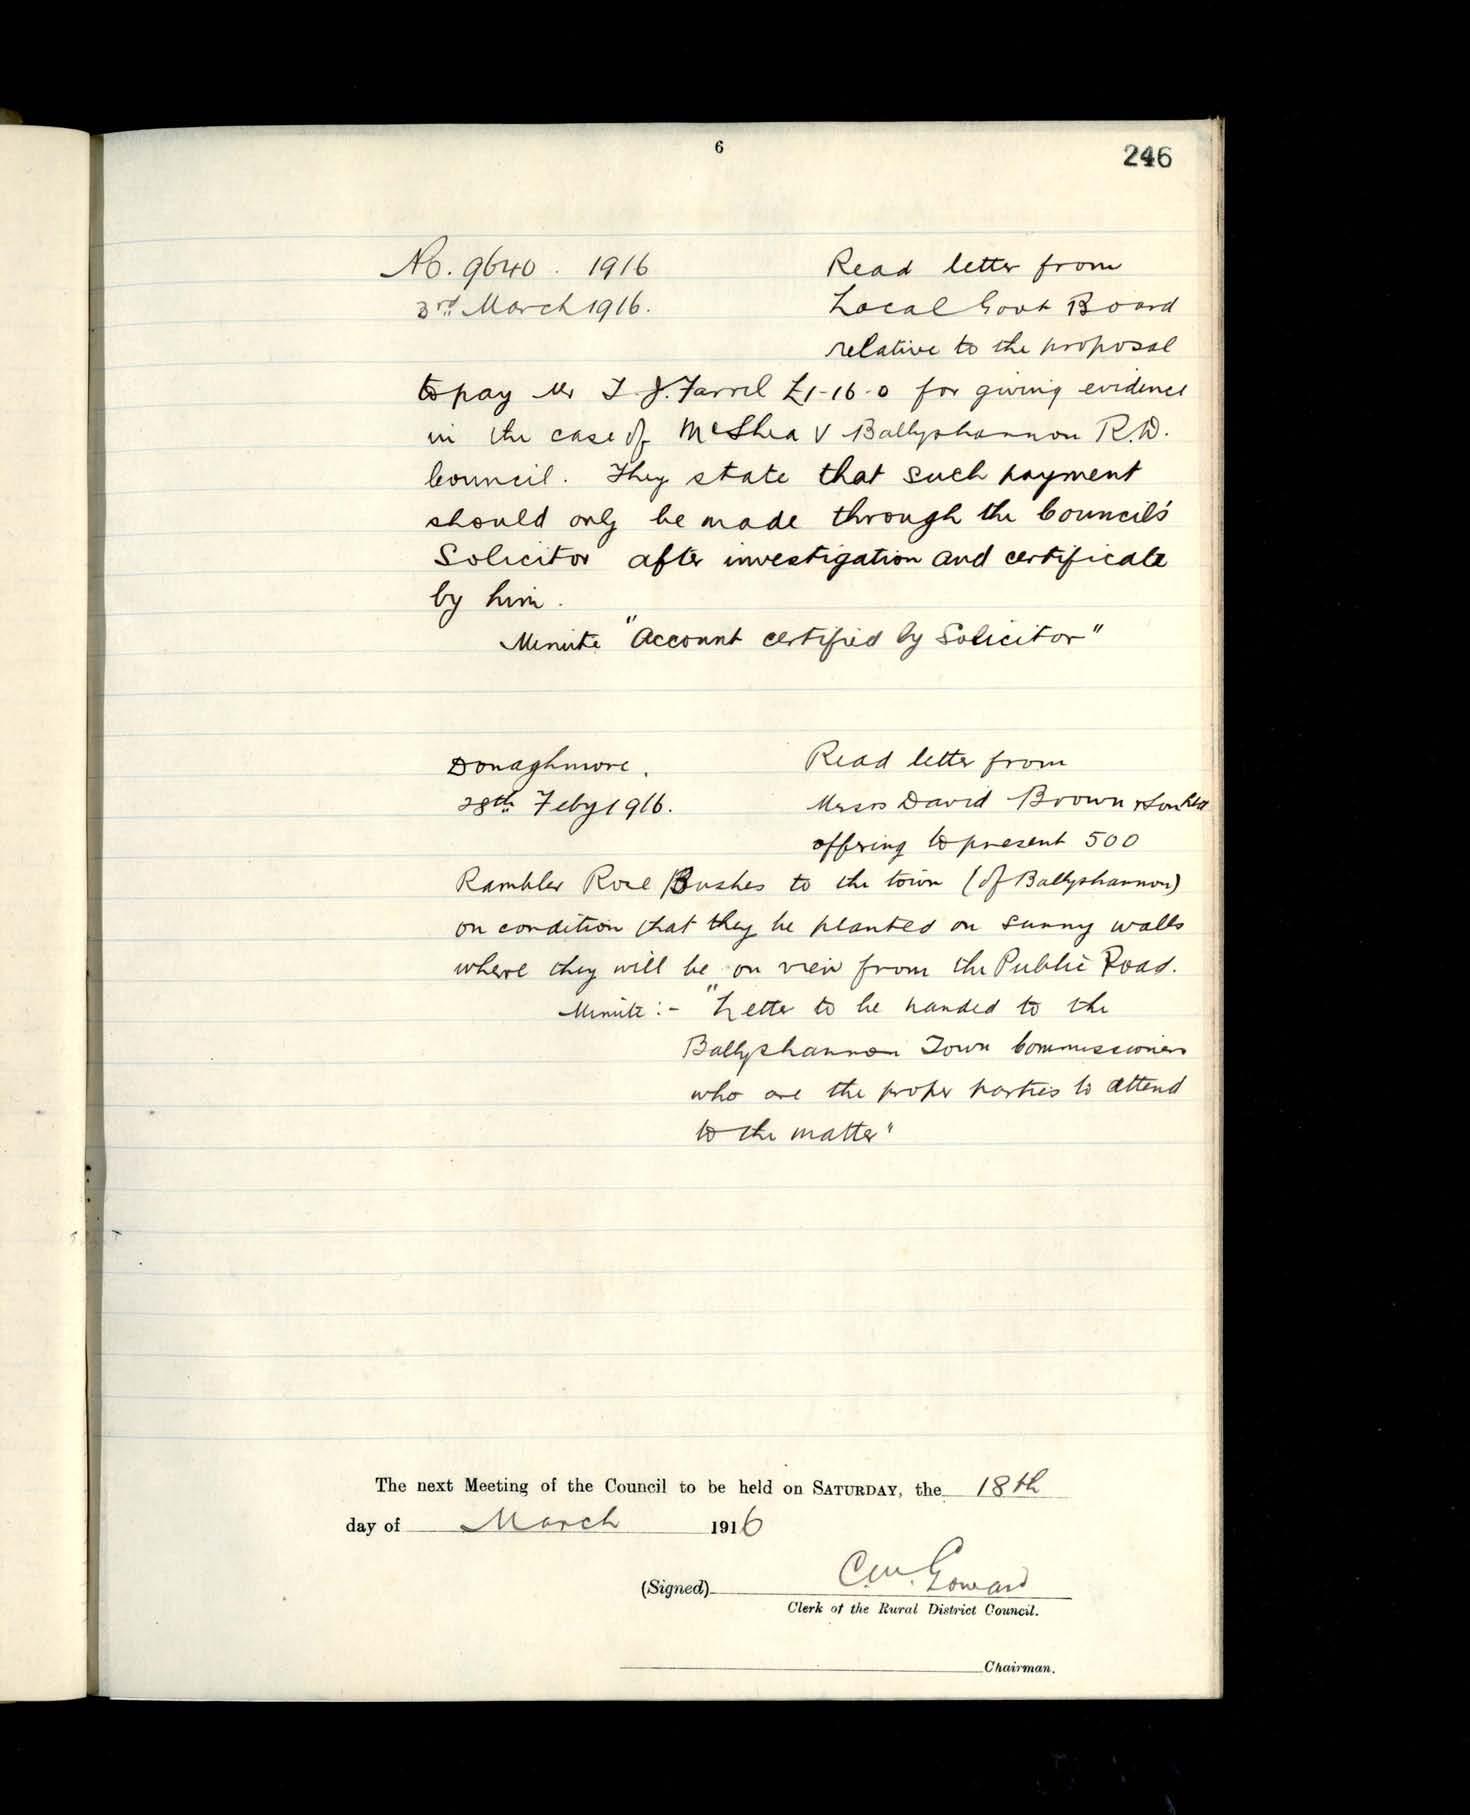 6
246
No. 9640. 1916
Read letter from
3rd March 1916.
Local Govt Board
relative to the proposal
to pay Mr T. J. Farrel £1-16-0 for giving evidence
in the case of McShea V Ballyshannon R.D.
Council. They state that such payment
should only be made through the Council's
Solicitor after investigation and certificate
by him.
Minute "Account certified by Solicitor"
Donaghmore.
Read letter from
28th Feby 1916.
Messrs David Brown & Son Ltd
offering to present 500
Rambler Rose Bushes to the town (of Ballyshannon)
on condition that they be planted on sunny walls
where they will be on view from the Public Road.
Minute:- "Letter to be handed to the
Ballyshannon Town Commissioners
who are the proper parties to attend
to the matter"
The next Meeting of the Council to be held on SATURDAY, the 18th
day of March 1916
(Signed) C.W. Goward
Clerk of the Rural District Council.
Chairman.